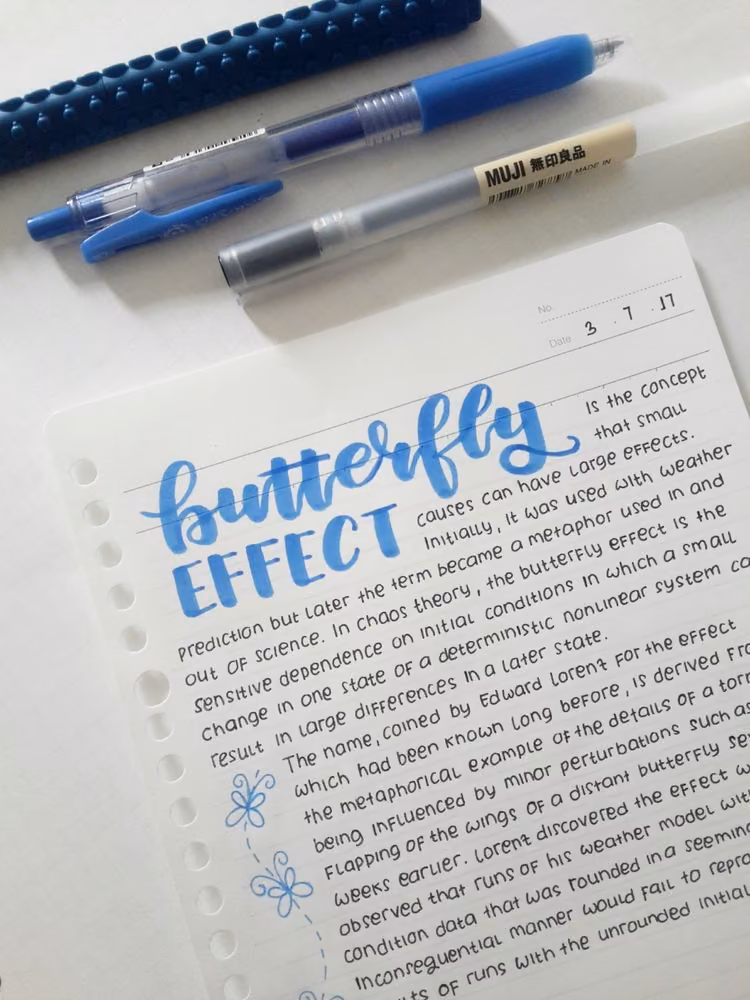 MUJI 無印良品
MADE IN
No.
Date 3 . 7 . 17
butterfly is the concept
that small
EFFECT causes can have large effects.
Initially, it was used with weather
prediction but later the term became a metaphor used in and
out of science. In chaos theory, the butterfly effect is the
sensitive dependence on initial conditions in which a small
change in one state of a deterministic nonlinear system ca
result in large differences in a later state.
The name, coined by Edward Lorenz for the effect
which had been known long before, is derived fro
the metaphorical example of the details of a torn
being influenced by minor perturbations such as
flapping of the wings of a distant butterfly se
weeks earlier. Lorenz discovered the effect w
observed that runs of his weather model wit
condition data that was rounded in a seeming
inconsequential manner would fail to repro
lts of runs with the unrounded initial